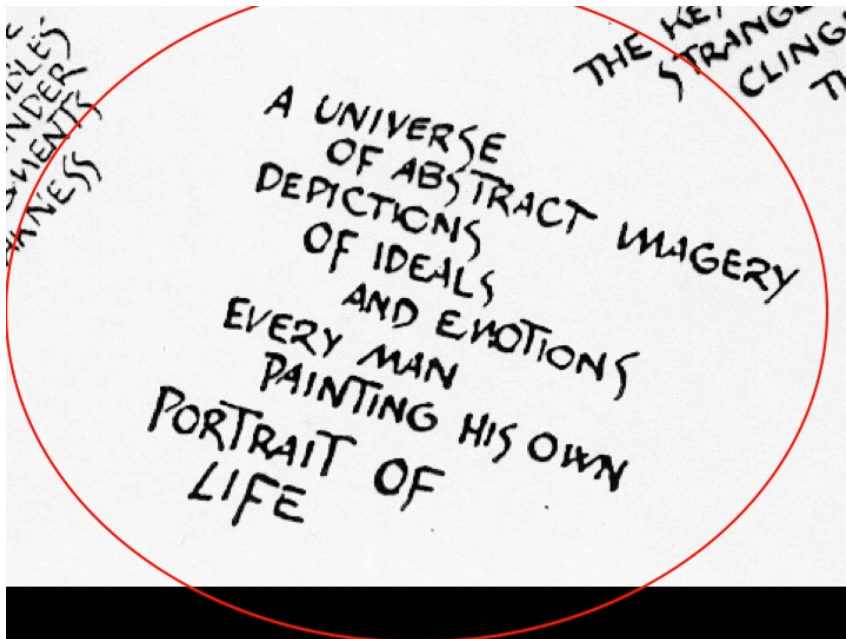 A UNIVERSE
OF ABSTRACT IMAGERY
DEPICTIONS
OF IDEALS
AND EMOTIONS
EVERY MAN
PAINTING HIS OWN
PORTRAIT OF
LIFE
THE